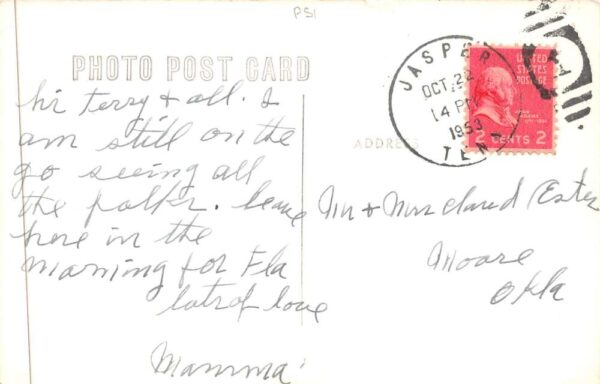 PS1
PHOTO POST CARD
JASPER
OCT 22
14 PM
1953
TENN
UNITED
STATES
POSTAGE
2 CENTS 2
ADDRESS
hi terry & all. I
am still on the
go seeing all
the folks. leave
here in the
morning for Fla
lots of love
Mamma
Mr & Mrs Ester
Moore
Okla